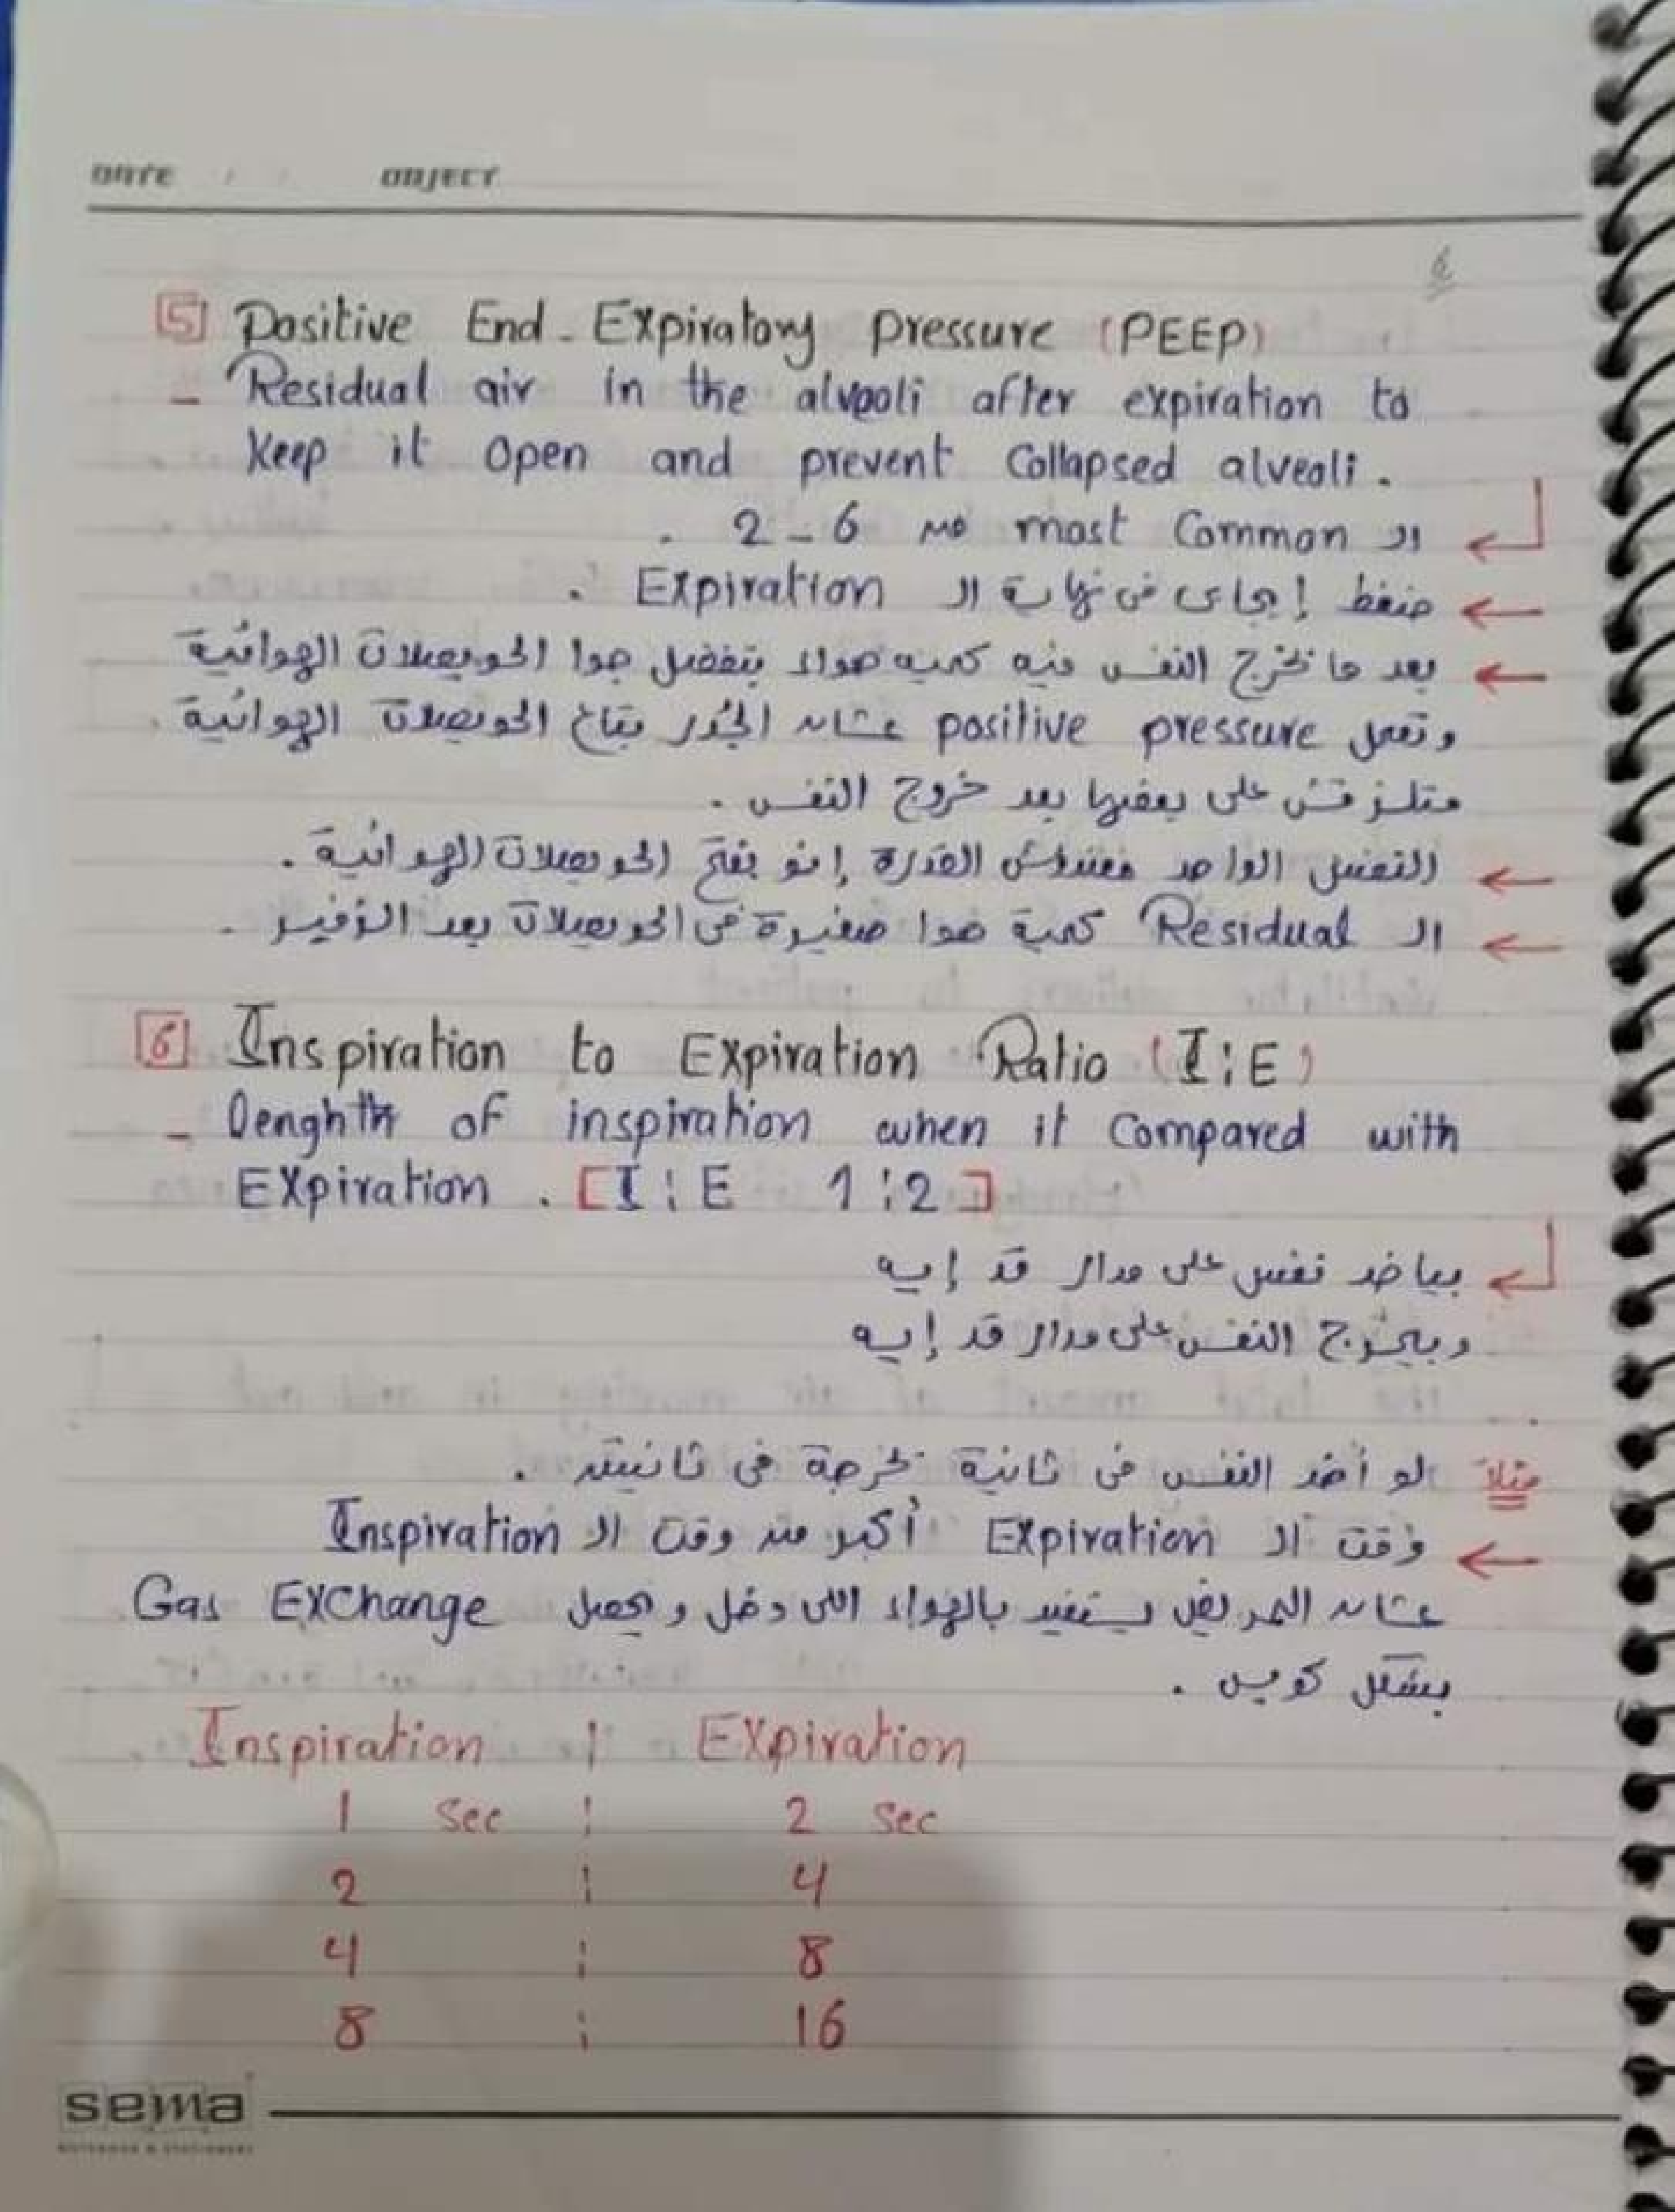 DATE / / OBJECT
6
5 Positive End - Expiratory pressure (PEEP)
- Residual air in the alveoli after expiration to
Keep it open and prevent Collapsed alveoli .
ال most Common من 2 - 6 .
ضغط إيجابى فى نهاية ال Expiration .
بعد ما نخرج النفس فيه كميه هواء بتفضل جوا الحويصلات الهوائية
وتعمل positive pressure عشان الجُدر بتاع الحويصلات الهوائية .
متلزقش على بعضها بعد خروج النفس .
النفس الواحد معندوش القدرة إنو يفتح الحويصلات الهوائية .
ال Residual كمية هوا صغيرة فى الحويصلات بعد الزفير .
6 Inspiration to Expiration Ratio (I:E)
- Lenghth of inspiration when it Compared with
Expiration . [I:E 1:2]
بياخد نفس على مدار قد إيه
وبيخرج النفس على مدار قد إيه
مثلا لو أخد النفس فى ثانية نخرجة فى ثانيتين .
وقت ال Expiration أكبر من وقت ال Inspiration
عشان المريض يستفيد بالهواء اللى دخل ويحصل Gas Exchange
بشكل كويس .
Inspiration : Expiration
1 sec : 2 sec
2 : 4
4 : 8
8 : 16
sema
NOTEBOOK & STATIONERY